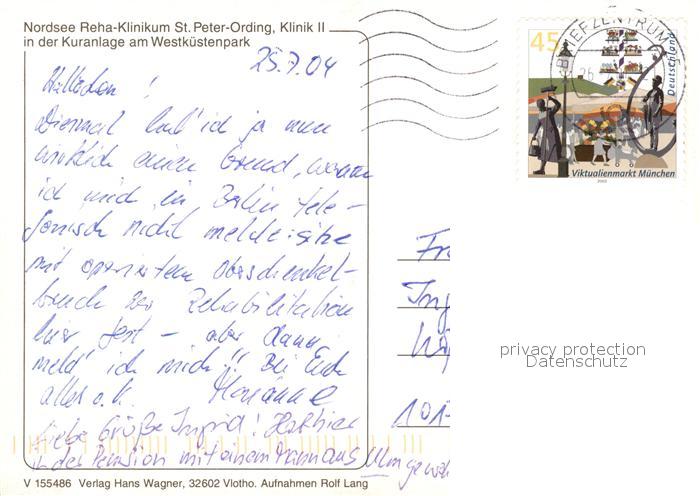 Nordsee Reha-Klinikum St. Peter-Ording, Klinik II
in der Kuranlage am Westküstenpark
25.7.04
Hallöchen!
Diesmal hab' ich ja nun
wirklich einen Grund, warum
ich mich in Berlin tele-
fonisch nicht melde: sitze
mit operiertem Oberschenkel-
bruch zur Rehabilitation
hier fest – aber dann
meld' ich mich!! Bei Euch
alles o.k. Marianne
Liebe Grüße Ingrid! Hat hier
in der Pension mit einem Mann aus Ulm
V 155486 Verlag Hans Wagner, 32602 Vlotho. Aufnahmen Rolf Lang
45
Deutschland
Viktualienmarkt München
2003
BRIEFZENTRUM
Fr
Ing
101
privacy protection
Datenschutz